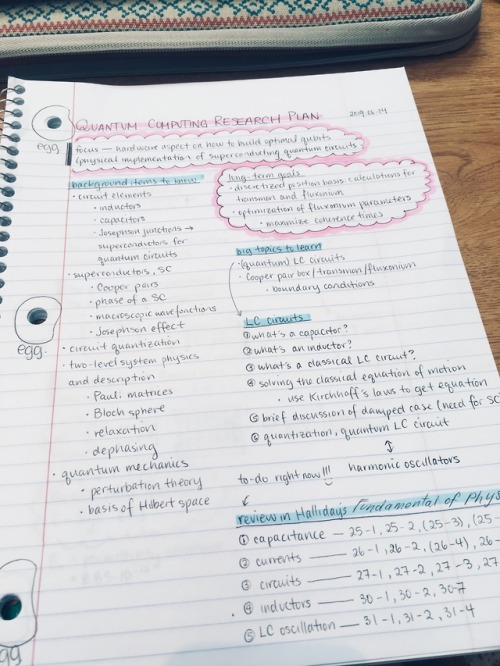 QUANTUM COMPUTING RESEARCH PLAN
egg
focus — hardware aspect on how to build optimal qubits
(physical implementation of superconducting quantum circuits)
background items to know
• circuit elements
• inductors
• capacitors
• Josephson junctions →
superconductors for
quantum circuits
• superconductors, SC
• Cooper pairs
• phase of a SC
• macroscopic wavefunctions
• Josephson effect
• circuit quantization
• two-level system physics
and description
• Pauli matrices
• Bloch sphere
• relaxation
• dephasing
• quantum mechanics
• perturbation theory
• basis of Hilbert space
egg.
long-term goals
• discretized position basis calculations for
transmon and fluxonium
• optimization of fluxonium parameters
• maximize coherence times
big topics to learn
• (quantum) LC circuits
• Cooper pair box/transmon/fluxonium
• boundary conditions
LC circuits
① what's a capacitor?
② what's an inductor?
③ what's a classical LC circuit?
④ solving the classical equation of motion
• use Kirchhoff's laws to get equation
⑤ brief discussion of damped case (need for SC
⑥ quantization, quantum LC circuit
↕
harmonic oscillators
to-do right now!!!
review in Halliday's Fundamental of Phys
① capacitance — 25-1, 25-2, (25-3), (25-
② currents — 26-1, 26-2, (26-4), 26-
③ circuits — 27-1, 27-2, 27-3, 27
④ inductors — 30-1, 30-2, 30-7
⑤ LC oscillation — 31-1, 31-2, 31-4
gg